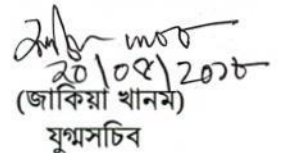 ২০/০৫/২০১৮
(জাকিয়া খানম)
যুগ্মসচিব